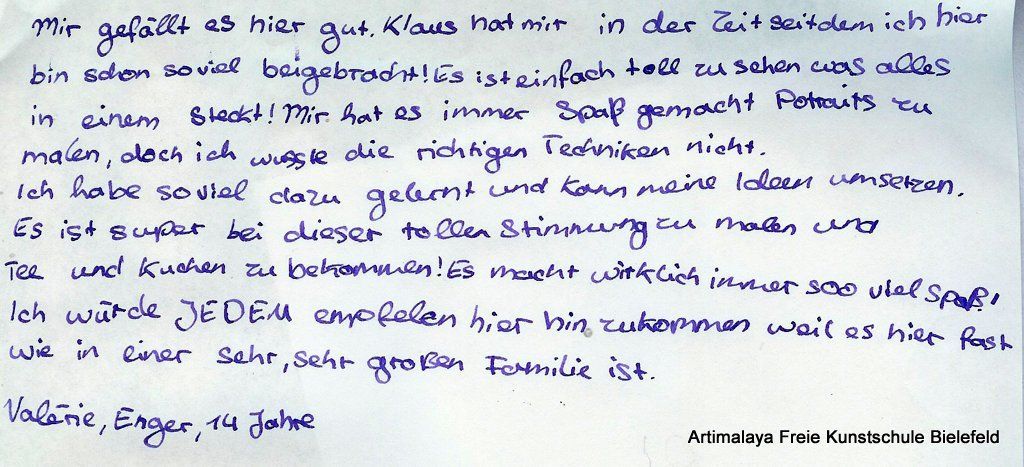 Mir gefällt es hier gut. Klaus hat mir in der Zeit seitdem ich hier
bin schon soviel beigebracht! Es ist einfach toll zu sehen was alles
in einem steckt! Mir hat es immer Spaß gemacht Potraits zu
malen, doch ich wusste die richtigen Techniken nicht.
Ich habe soviel dazu gelernt und kann meine Ideen umsetzen.
Es ist super bei dieser tollen Stimmung zu malen und
Tee und Kuchen zu bekommen! Es macht wirklich immer soo viel Spaß!
Ich würde JEDEM empfelen hier hin zukommen weil es hier fast
wie in einer sehr, sehr großen Familie ist.
Valérie, Enger, 14 Jahre
Artimalaya Freie Kunstschule Bielefeld